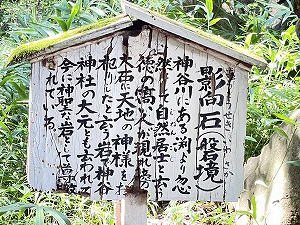 影向石(磐境)
神谷川にある渕より忽
然として自然居士と言う
徳の高い人が現れ後の
木車に天地の神様を拝
祀りしたと言う岩神谷
神社の大元とも言われて
今に神聖な岩として
されている。